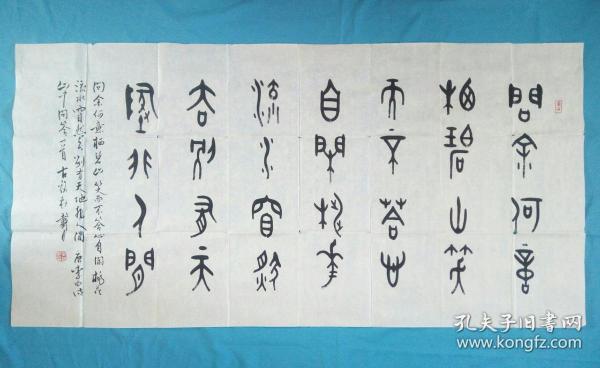 問余何意
栖碧山笑
而不答心
自閑桃華
流水窅然
去別有天
地非人間
问余何意栖碧山笑而不答心自闲桃花
流水窅然去别有天地非人间 唐李白诗
山中问答一首
孔夫子旧书网
www.kongfz.com